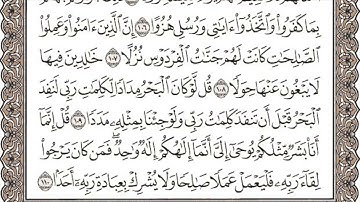 بِمَا كَفَرُوا۟ وَٱتَّخَذُوٓا۟ ءَايَٰتِى وَرُسُلِى هُزُوًا ١٠٦ إِنَّ ٱلَّذِينَ ءَامَنُوا۟ وَعَمِلُوا۟
ٱلصَّٰلِحَٰتِ كَانَتْ لَهُمْ جَنَّٰتُ ٱلْفِرْدَوْسِ نُزُلًا ١٠٧ خَٰلِدِينَ فِيهَا
لَا يَبْغُونَ عَنْهَا حِوَلًا ١٠٨ قُل لَّوْ كَانَ ٱلْبَحْرُ مِدَادًا لِّكَلِمَٰتِ رَبِّى لَنَفِدَ
ٱلْبَحْرُ قَبْلَ أَن تَنفَدَ كَلِمَٰتُ رَبِّى وَلَوْ جِئْنَا بِمِثْلِهِۦ مَدَدًا ١٠٩ قُلْ إِنَّمَآ
أَنَا۠ بَشَرٌ مِّثْلُكُمْ يُوحَىٰٓ إِلَىَّ أَنَّمَآ إِلَٰهُكُمْ إِلَٰهٌ وَٰحِدٌ ۖ فَمَن كَانَ يَرْجُوا۟
لِقَآءَ رَبِّهِۦ فَلْيَعْمَلْ عَمَلًا صَٰلِحًا وَلَا يُشْرِكْ بِعِبَادَةِ رَبِّهِۦٓ أَحَدًۢا ١١٠